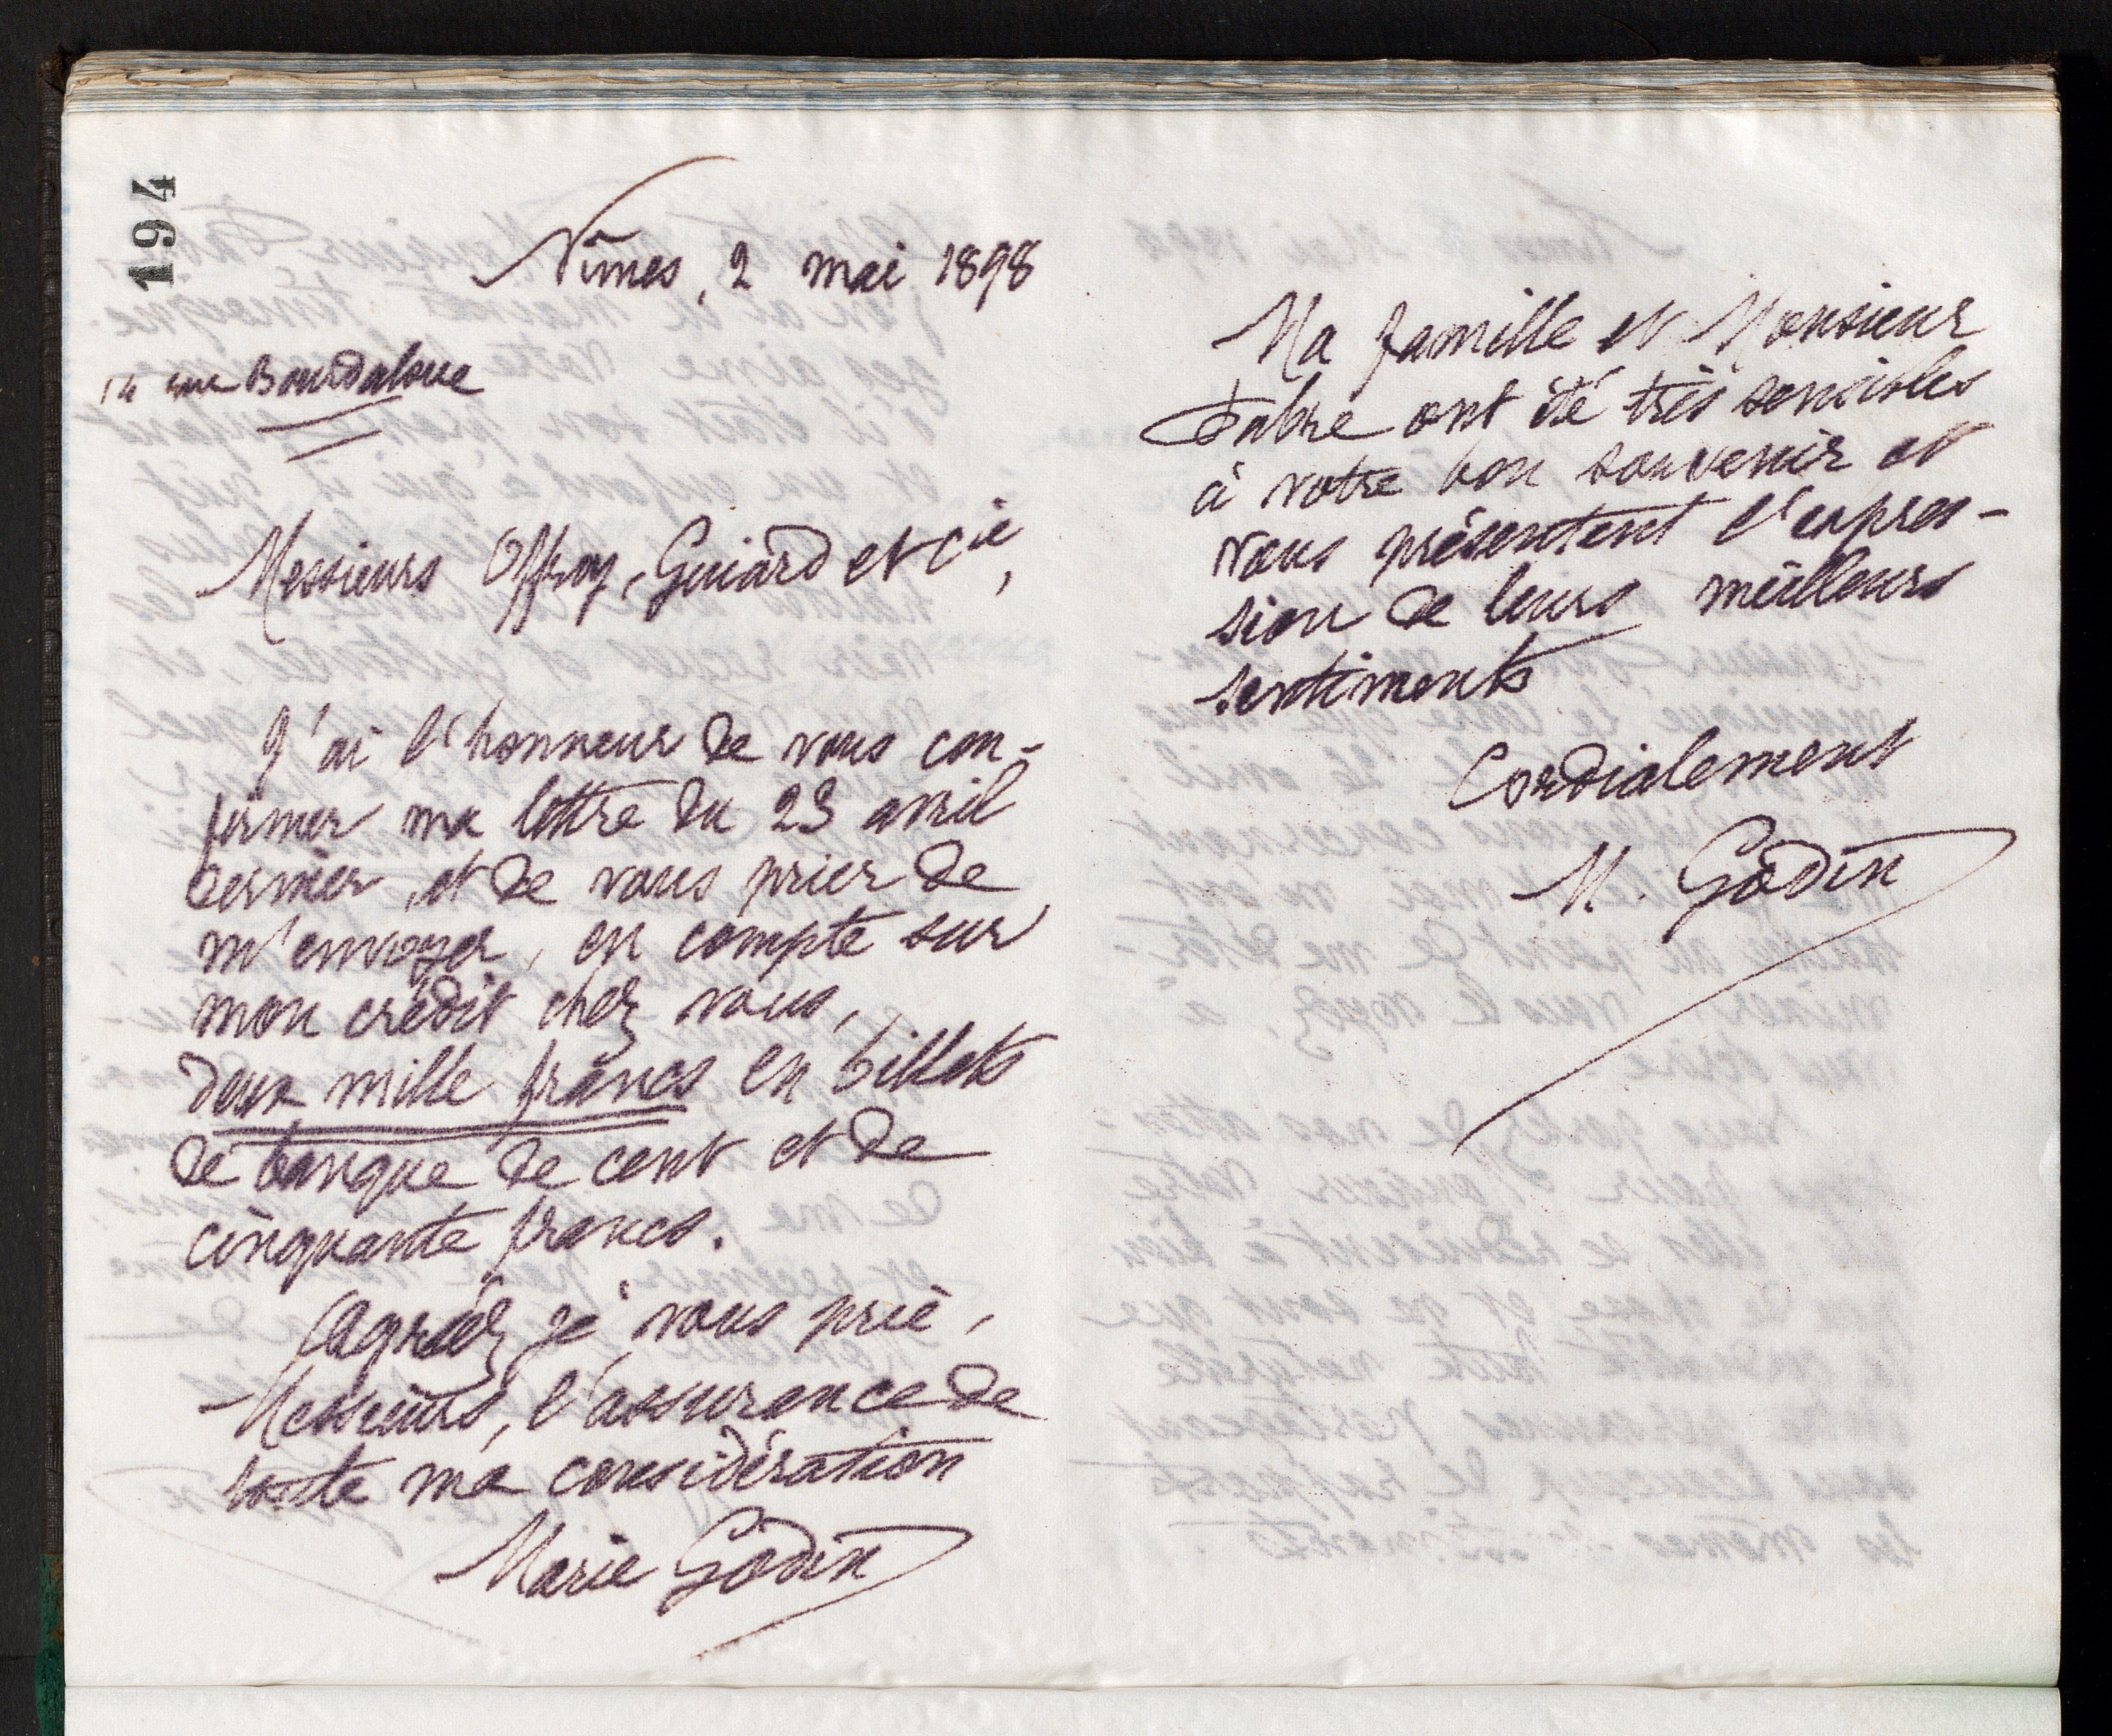 194
Nîmes, 2 mai 1898
14 rue Bourdaloue
Messieurs Offroy, Guiard et Cie,
J'ai l'honneur de vous con-
firmer ma lettre du 23 avril
dernier, et de vous prier de
m'envoyer, en compte sur
mon crédit chez vous,
deux mille francs en billets
de banque de cent et de
cinquante francs.
Agréez je vous prie,
Messieurs, l'assurance de
toute ma considération
Marie Godin
Ma famille et Monsieur
Fabre ont été très sensibles
à votre bon souvenir et
vous présentent l'expres-
sion de leurs meilleurs
sentiments
Cordialement
M. Godin